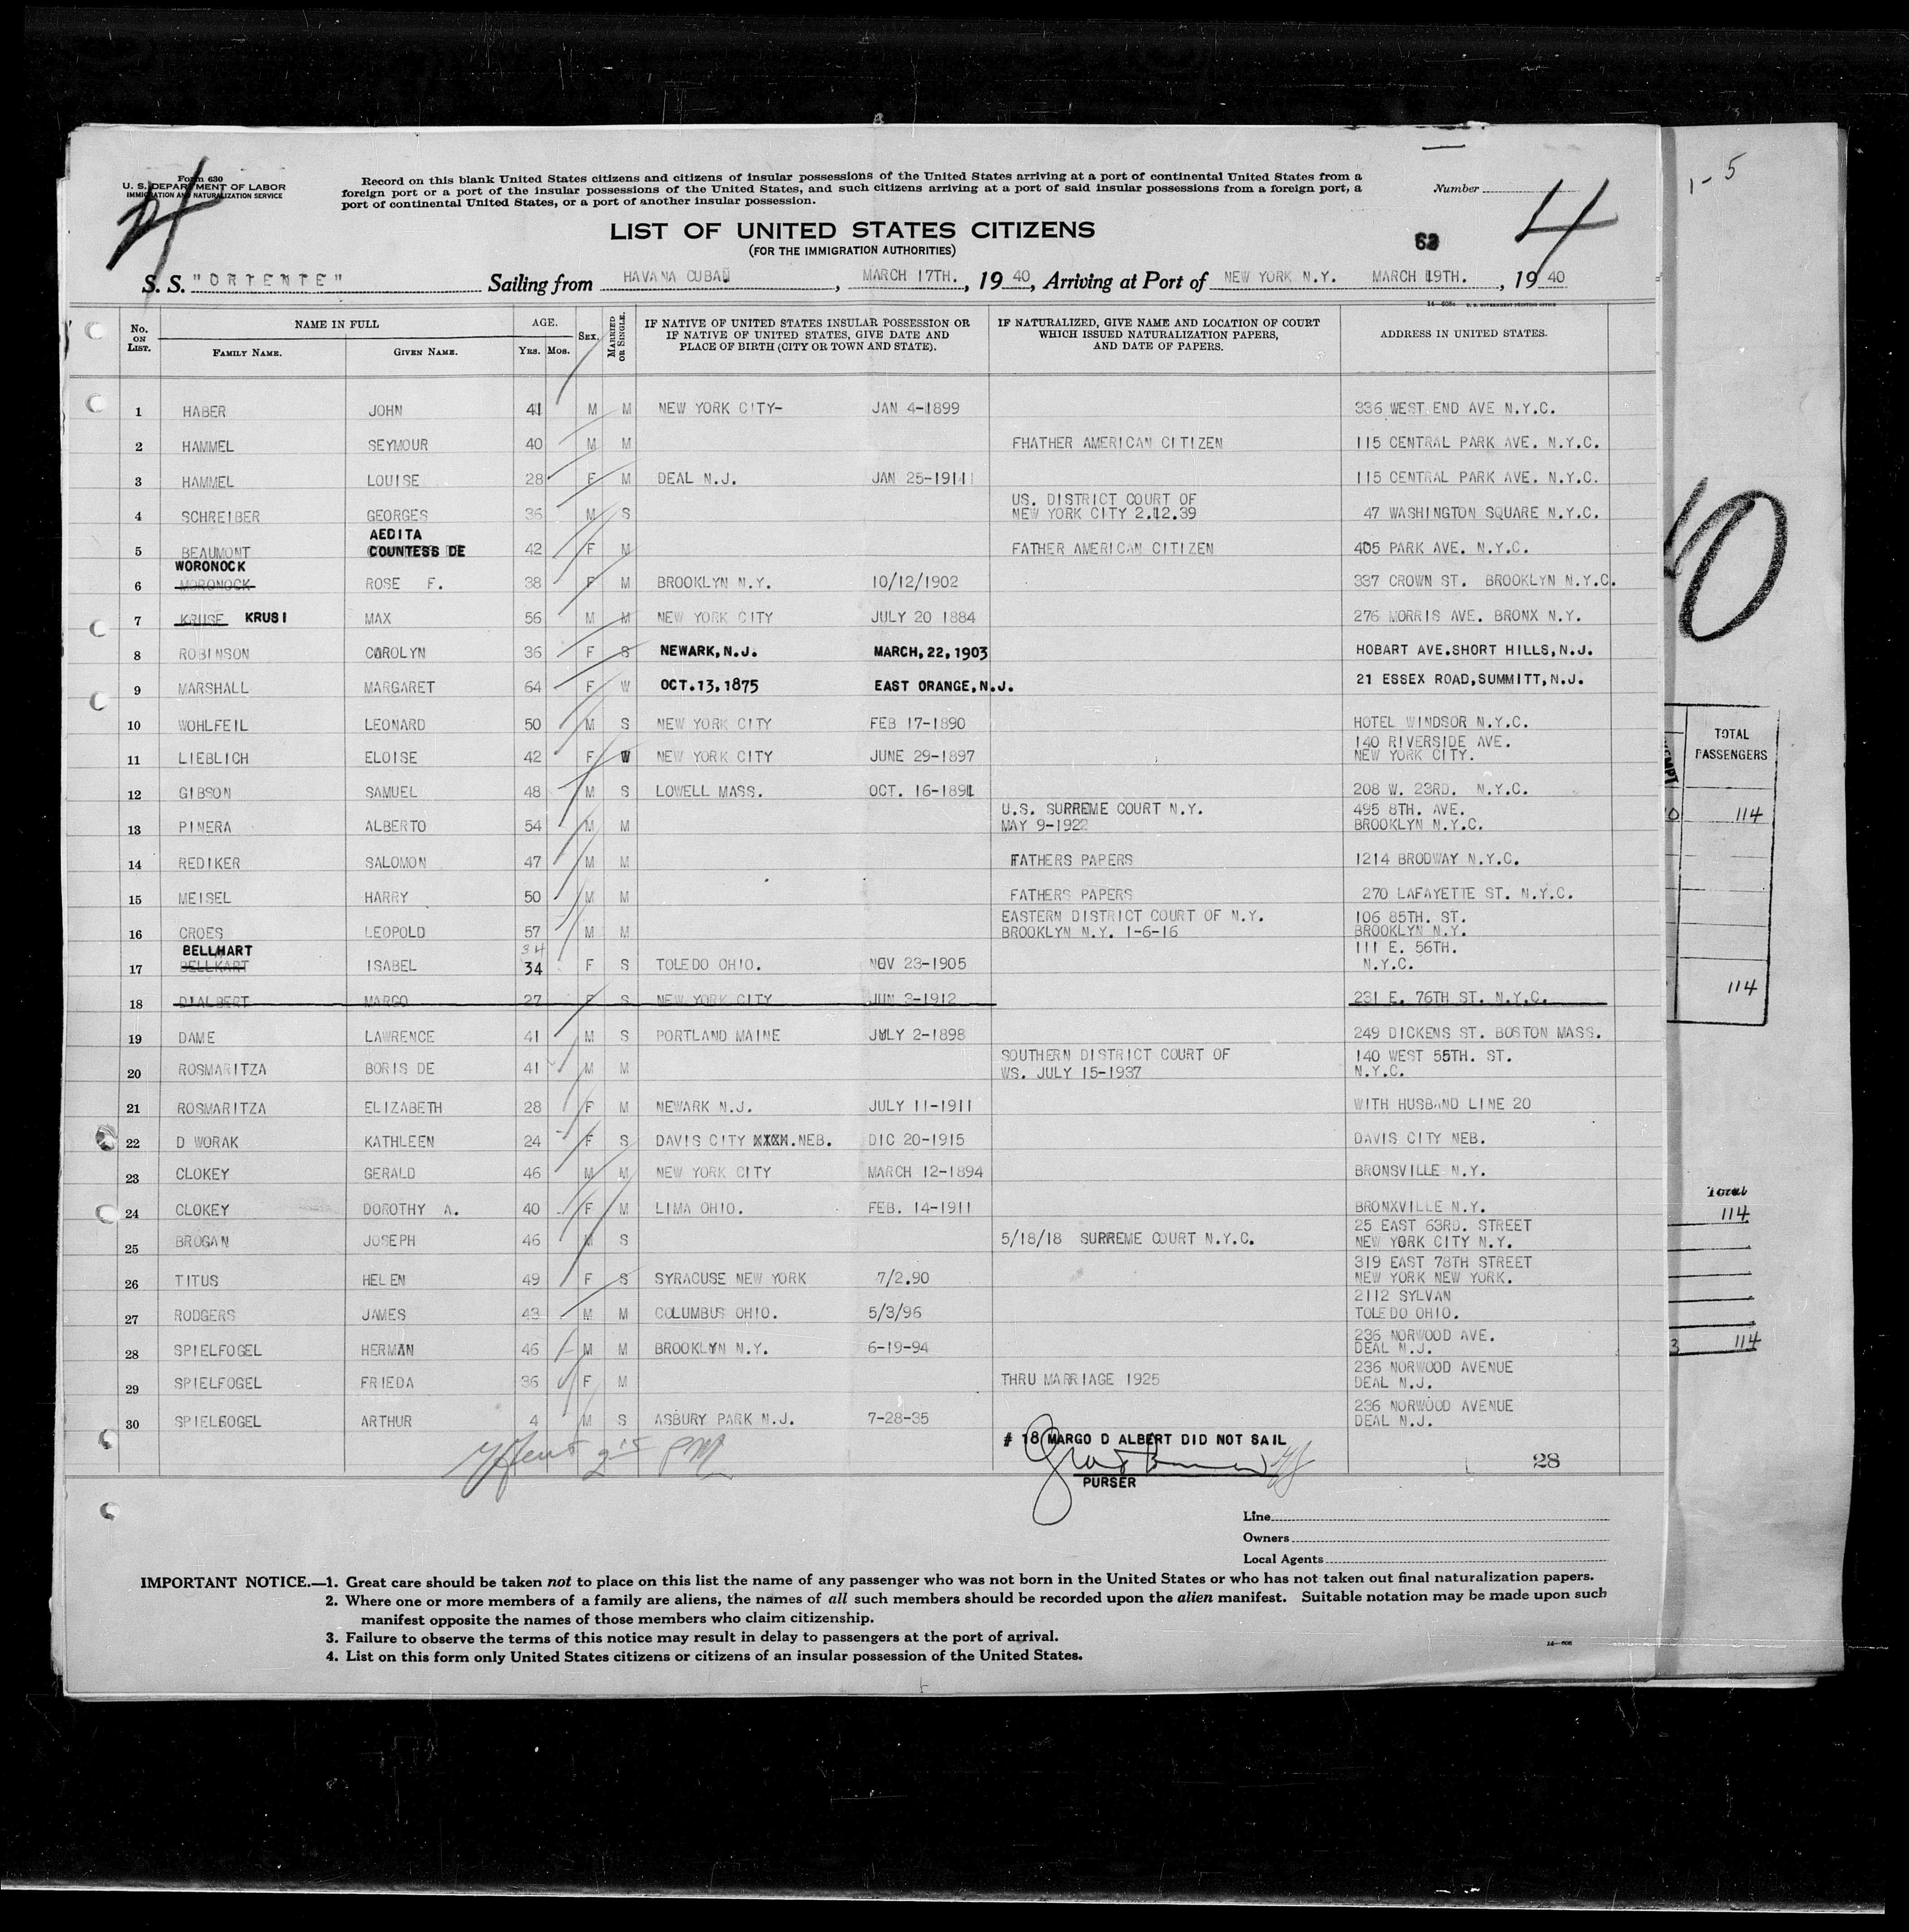 1-5
Form 630
U. S. DEPARTMENT OF LABOR
IMMIGRATION AND NATURALIZATION SERVICE
Record on this blank United States citizens and citizens of insular possessions of the United States arriving at a port of continental United States from a
foreign port or a port of the insular possessions of the United States, and such citizens arriving at a port of said insular possessions from a foreign port, a
port of continental United States, or a port of another insular possession.
Number
4
LIST OF UNITED STATES CITIZENS
(FOR THE IMMIGRATION AUTHORITIES)
S. S. "ORIENTE" Sailing from HAVANA CUBA, MARCH 17TH., 1940, Arriving at Port of NEW YORK N.Y. MARCH 19TH., 1940
No. ON LIST. NAME IN FULL FAMILY NAME. GIVEN NAME. AGE. YRS. MOS. SEX. MARRIED OR SINGLE. IF NATIVE OF UNITED STATES INSULAR POSSESSION OR IF NATIVE OF UNITED STATES, GIVE DATE AND PLACE OF BIRTH (CITY OR TOWN AND STATE). IF NATURALIZED, GIVE NAME AND LOCATION OF COURT WHICH ISSUED NATURALIZATION PAPERS, AND DATE OF PAPERS. ADDRESS IN UNITED STATES.
1 HABER JOHN 41 M M NEW YORK CITY- JAN 4-1899 336 WEST END AVE N.Y.C.
2 HAMMEL SEYMOUR 40 M M FHATHER AMERICAN CITIZEN 115 CENTRAL PARK AVE. N.Y.C.
3 HAMMEL LOUISE 28 F M DEAL N.J. JAN 25-1911 115 CENTRAL PARK AVE. N.Y.C.
US. DISTRICT COURT OF
4 SCHREIBER GEORGES 36 M S NEW YORK CITY 2.12.39 47 WASHINGTON SQUARE N.Y.C.
AEDITA
5 BEAUMONT COUNTESS DE 42 F M FATHER AMERICAN CITIZEN 405 PARK AVE. N.Y.C.
WORONOCK
6 MORONOCK ROSE F. 38 F M BROOKLYN N.Y. 10/12/1902 337 CROWN ST. BROOKLYN N.Y.C.
7 KRUSE KRUSI MAX 56 M M NEW YORK CITY JULY 20 1884 276 MORRIS AVE. BRONX N.Y.
8 ROBINSON CAROLYN 36 F S NEWARK, N.J. MARCH, 22, 1903 HOBART AVE. SHORT HILLS, N.J.
9 MARSHALL MARGARET 64 F W OCT. 13, 1875 EAST ORANGE, N.J. 21 ESSEX ROAD, SUMMITT, N.J.
10 WOHLFEIL LEONARD 50 M S NEW YORK CITY FEB 17-1890 HOTEL WINDSOR N.Y.C.
140 RIVERSIDE AVE.
11 LIEBLICH ELOISE 42 F W NEW YORK CITY JUNE 29-1897 NEW YORK CITY.
12 GIBSON SAMUEL 48 M S LOWELL MASS. OCT. 16-1891 208 W. 23RD. N.Y.C.
U.S. SUPREME COURT N.Y. 495 8TH. AVE.
13 PINERA ALBERTO 54 M M MAY 9-1922 BROOKLYN N.Y.C.
14 REDIKER SALOMON 47 M M FATHERS PAPERS 1214 BRODWAY N.Y.C.
15 MEISEL HARRY 50 M M FATHERS PAPERS 270 LAFAYETTE ST. N.Y.C.
EASTERN DISTRICT COURT OF N.Y. 106 85TH. ST.
16 CROES LEOPOLD 57 M M BROOKLYN N.Y. 1-6-16 BROOKLYN N.Y.
BELLHART 34 111 E. 56TH.
17 BELLKART ISABEL 34 F S TOLEDO OHIO. NOV 23-1905 N.Y.C.
18 D'ALBERT MARGO 27 F S NEW YORK CITY JUN 3-1912 231 E. 76TH ST. N.Y.C.
19 DAME LAWRENCE 41 M S PORTLAND MAINE JULY 2-1898 249 DICKENS ST. BOSTON MASS.
SOUTHERN DISTRICT COURT OF 140 WEST 55TH. ST.
20 ROSMARITZA BORIS DE 41 M M WS. JULY 15-1937 N.Y.C.
21 ROSMARITZA ELIZABETH 28 F M NEWARK N.J. JULY 11-1911 WITH HUSBAND LINE 20
22 D WORAK KATHLEEN 24 F S DAVIS CITY XXXX.NEB. DIC 20-1915 DAVIS CITY NEB.
23 CLOKEY GERALD 46 M M NEW YORK CITY MARCH 12-1894 BRONSVILLE N.Y.
24 CLOKEY DOROTHY A. 40 F M LIMA OHIO. FEB. 14-1911 BRONXVILLE N.Y.
25 EAST 63RD. STREET
25 BROGAN JOSEPH 46 M S 5/18/18 SUPREME COURT N.Y.C. NEW YORK CITY N.Y.
319 EAST 78TH STREET
26 TITUS HELEN 49 F S SYRACUSE NEW YORK 7/2.90 NEW YORK NEW YORK.
2112 SYLVAN
27 RODGERS JAMES 43 M M COLUMBUS OHIO. 5/3/96 TOLEDO OHIO.
236 NORWOOD AVE.
28 SPIELFOGEL HERMAN 46 M M BROOKLYN N.Y. 6-19-94 DEAL N.J.
236 NORWOOD AVENUE
29 SPIELFOGEL FRIEDA 36 F M THRU MARRIAGE 1925 DEAL N.J.
236 NORWOOD AVENUE
30 SPIELFOGEL ARTHUR 4 M S ASBURY PARK N.J. 7-28-35 DEAL N.J.
# 18 MARGO D ALBERT DID NOT SAIL
PURSER
28
Line
Owners
Local Agents
IMPORTANT NOTICE.—1. Great care should be taken not to place on this list the name of any passenger who was not born in the United States or who has not taken out final naturalization papers.
2. Where one or more members of a family are aliens, the names of all such members should be recorded upon the alien manifest. Suitable notation may be made upon such
manifest opposite the names of those members who claim citizenship.
3. Failure to observe the terms of this notice may result in delay to passengers at the port of arrival.
4. List on this form only United States citizens or citizens of an insular possession of the United States.
TOTAL
PASSENGERS
114
114
Total
114
114